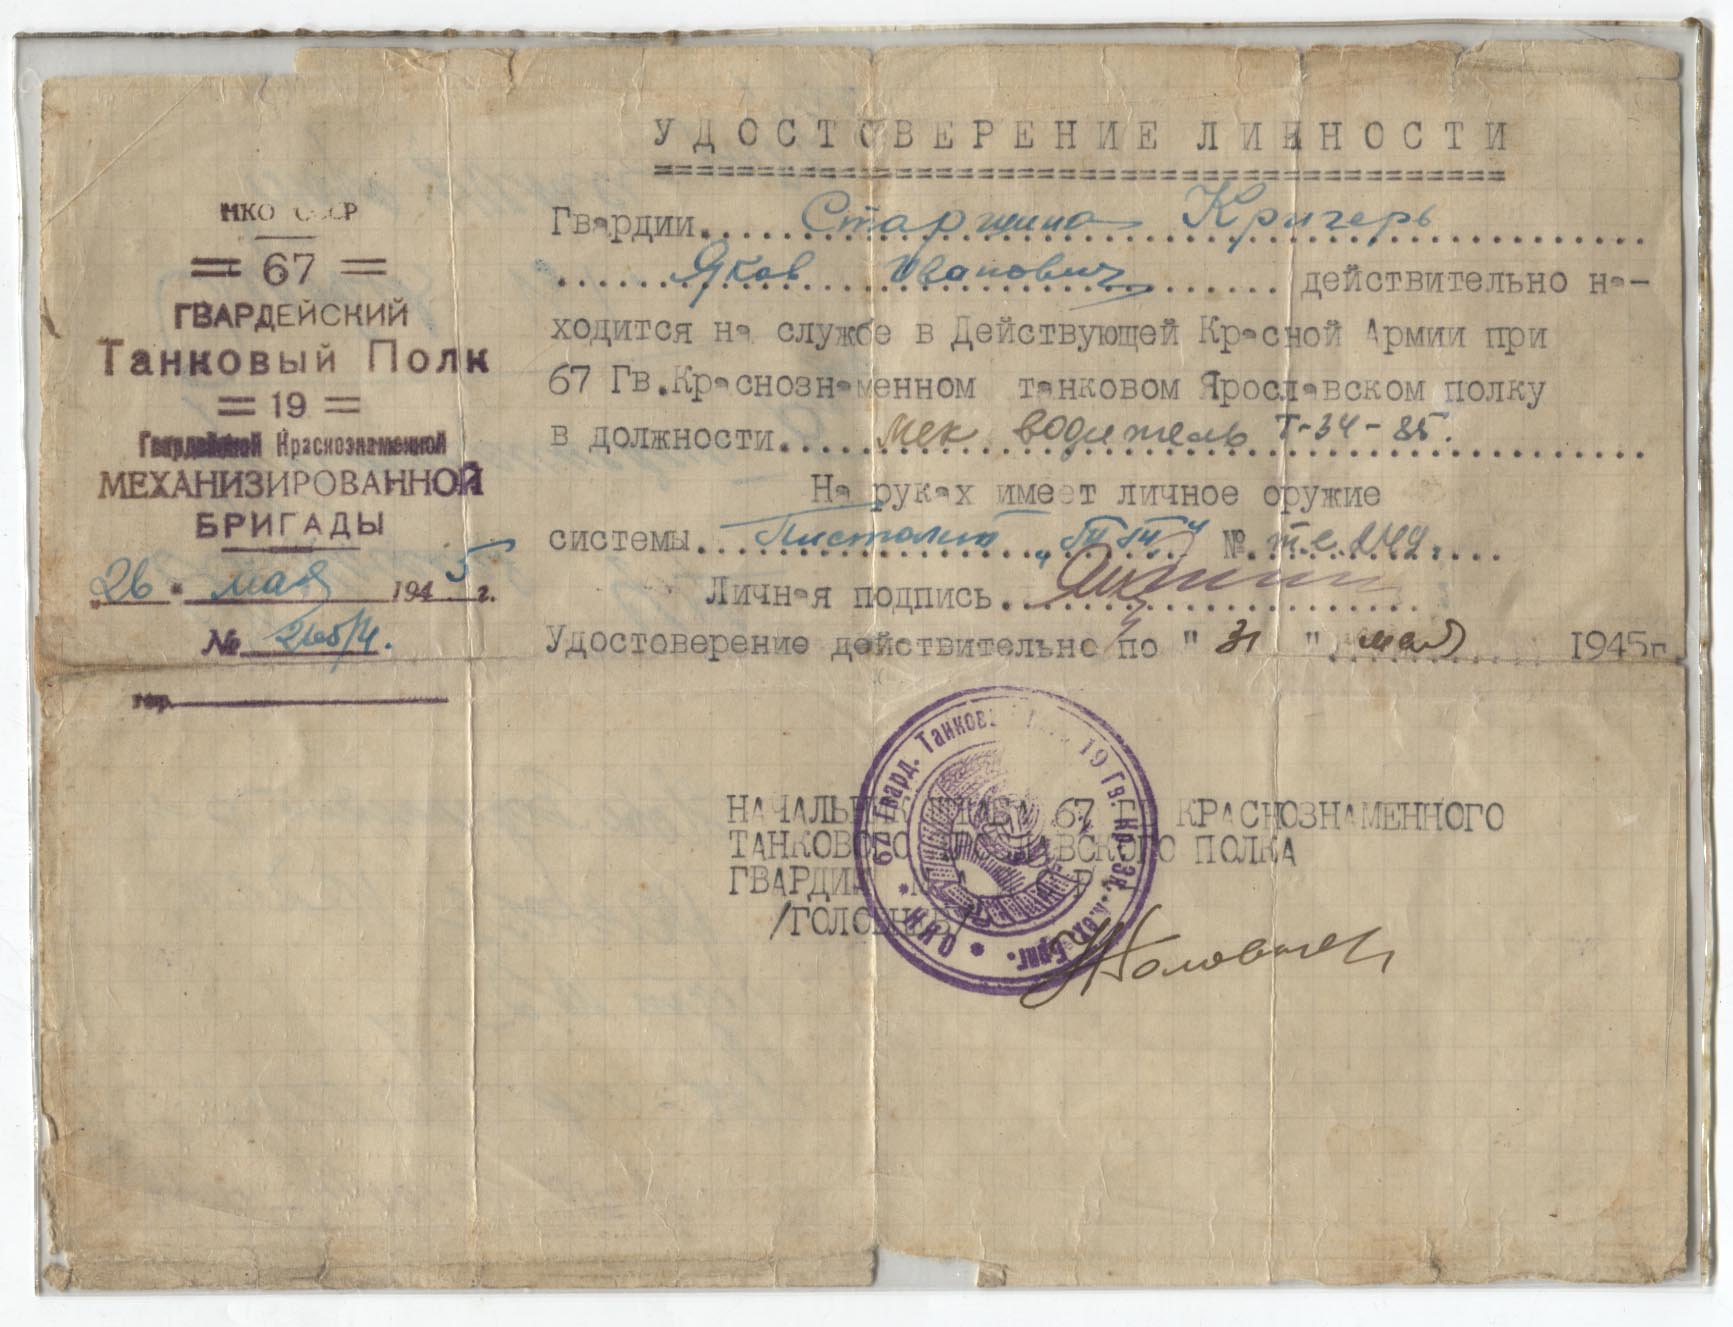 УДОСТОВЕРЕНИЕ ЛИЧНОСТИ
НКО СССР
67
ГВАРДЕЙСКИЙ
Танковый Полк
19
Гвардейской Краснознаменной
МЕХАНИЗИРОВАННОЙ
БРИГАДЫ
26 мая 1945 г.
№
гор.
Гвардии Старшина Кригерь
Яков Иванович действительно на-
ходится на службе в Действующей Красной Армии при
67 Гв.Краснознаменном танковом Ярославском полку
в должности мех водитель Т-34-85.
На руках имеет личное оружие
системы Пистолет „ТТ" №
Личная подпись
Удостоверение действительно по "31" мая 1945г.
НАЧАЛЬНИК ШТАБА 67 ГВ КРАСНОЗНАМЕННОГО
ТАНКОВОГО ЯРОСЛАВСКОГО ПОЛКА
ГВАРДИИ
/ГОЛОВНЕВ/
67 Гвард. Танков 19 Гв. Кр. Зн. Мех. Бриг. * НКО *